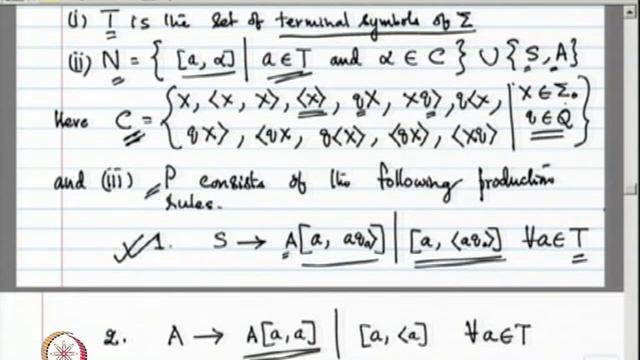 (i) T is the set of terminal symbols of Σ
(ii) N = { [a, α] | a ∈ T and α ∈ C } ∪ { S, A }
Here C = { X, <X, X>, <X>, qX, Xq>, q<X, | X ∈ Σ₀
qX>, <qX, q<X>, <qX>, <Xq> | q ∈ Q }
and (iii) P consists of the following production
rules.
1. S → A[a, aq₀>] | [a, <aq₀>] ∀a∈T
2. A → A[a, a] | [a, <a] ∀a∈T